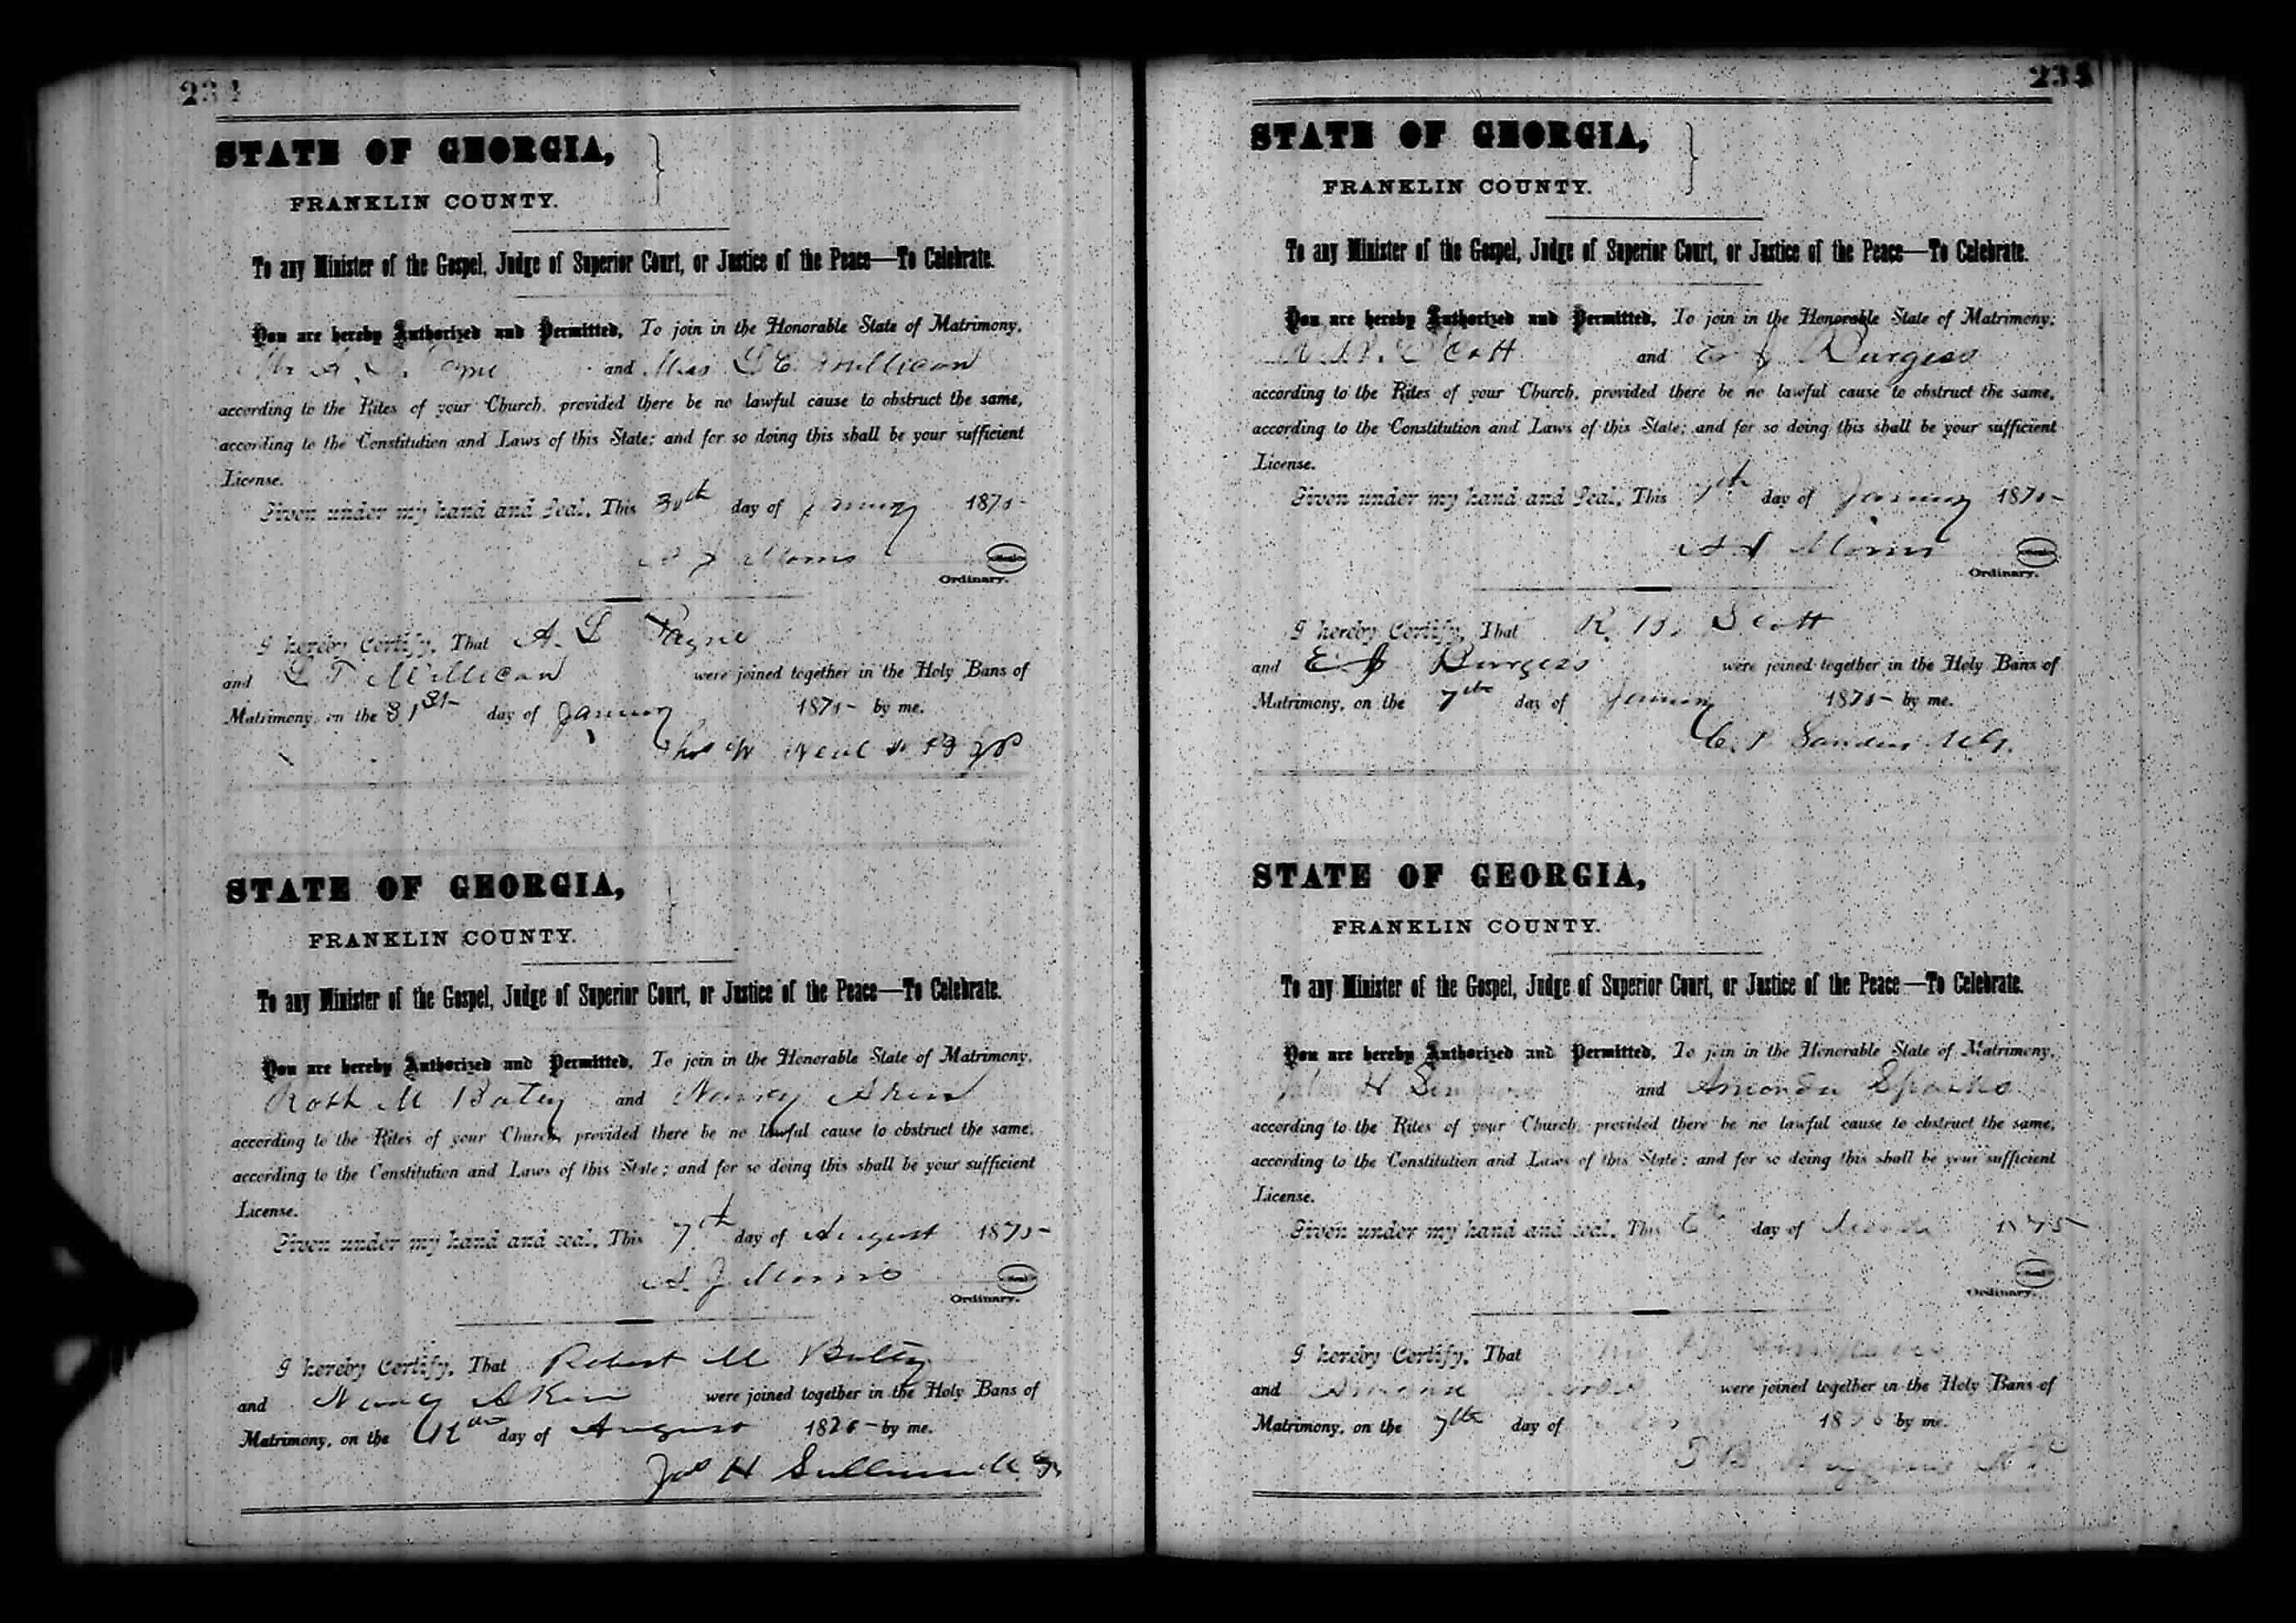 234
STATE OF GEORGIA,
FRANKLIN COUNTY.
To any Minister of the Gospel, Judge of Superior Court, or Justice of the Peace—To Celebrate.
You are hereby Authorized and Permitted, To join in the Honorable State of Matrimony,
and Miss Millican
according to the Rites of your Church, provided there be no lawful cause to obstruct the same,
according to the Constitution and Laws of this State; and for so doing this shall be your sufficient
License.
Given under my hand and Seal, This 30th day of January 1875
A J Morris
Ordinary.
I hereby Certify, That A. L Payne
and L T Millican were joined together in the Holy Bans of
Matrimony, on the 31st day of January 1875 by me.
Thos W Neal JP
STATE OF GEORGIA,
FRANKLIN COUNTY.
To any Minister of the Gospel, Judge of Superior Court, or Justice of the Peace—To Celebrate.
You are hereby Authorized and Permitted, To join in the Honorable State of Matrimony,
Robt M Batey and Nancy Akin
according to the Rites of your Church, provided there be no lawful cause to obstruct the same,
according to the Constitution and Laws of this State; and for so doing this shall be your sufficient
License.
Given under my hand and seal, This 7th day of August 1875
A. J Morris
Seal
Ordinary.
I hereby Certify, That Robert M
and Nancy Akin were joined together in the Holy Bans of
Matrimony, on the day of August 187 by me.
H Sullivan M. G.
STATE OF GEORGIA,
FRANKLIN COUNTY.
To any Minister of the Gospel, Judge of Superior Court, or Justice of the Peace—To Celebrate.
You are hereby Authorized and Permitted, To join in the Honorable State of Matrimony;
Scott and E J Burgess
according to the Rites of your Church, provided there be no lawful cause to obstruct the same,
according to the Constitution and Laws of this State; and for so doing this shall be your sufficient
License.
Given under my hand and Seal, This 7th day of January 1875
A J Morris
Ordinary.
I hereby Certify, That R. B. Scott
and E J Burgess were joined together in the Holy Bans of
Matrimony, on the 7th day of January 1875 by me.
Sanders M.G.
STATE OF GEORGIA,
FRANKLIN COUNTY.
To any Minister of the Gospel, Judge of Superior Court, or Justice of the Peace—To Celebrate.
You are hereby Authorized and Permitted, To join in the Honorable State of Matrimony,
H and Amanda Sparks
according to the Rites of your Church, provided there be no lawful cause to obstruct the same,
according to the Constitution and Laws of this State; and for so doing this shall be your sufficient
License.
Given under my hand and seal, This day of 1875
Seal
Ordinary.
I hereby Certify, That
and were joined together in the Holy Bans of
Matrimony, on the 7th day of 187 by me.